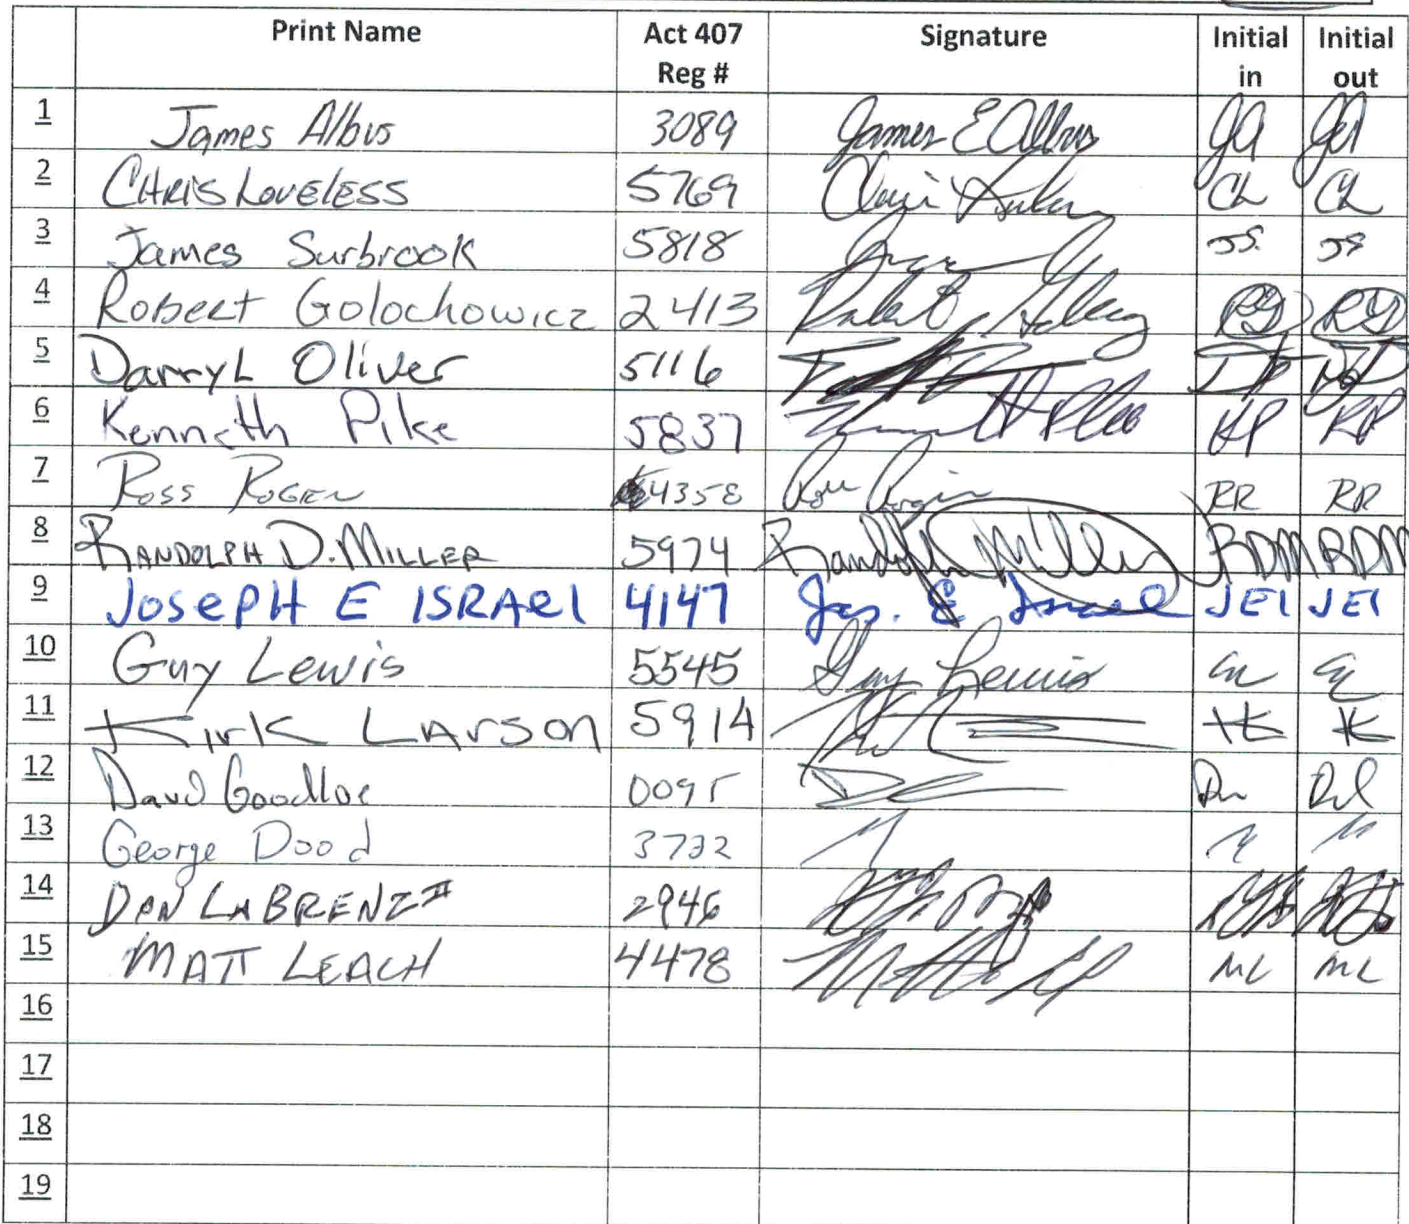 Print Name Act 407 Reg # Signature Initial in Initial out
1 James Albus 3089 James E Albus JA JA
2 CHRIS LOVELESS 5769 CL CL
3 James Surbrook 5818 JS. JS
4 Robert Golochowicz 2413 RG RG
5 Darryl Oliver 5116
6 Kenneth Pike 5837 KP KP
7 Ross Rogen 4358 RR RR
8 RANDOLPH D. MILLER 5974 Randolph Miller RDM RDM
9 JOSEPH E ISRAEl 4147 Jos. E Israel JEI JEI
10 Guy Lewis 5545 Guy Lewis
11 Kirk LArson 5914
12 David Goodloe 0095
13 George Dood 3732
14 DON LABRENZ II 2946
15 MATT LEACH 4478 ML ML
16
17
18
19